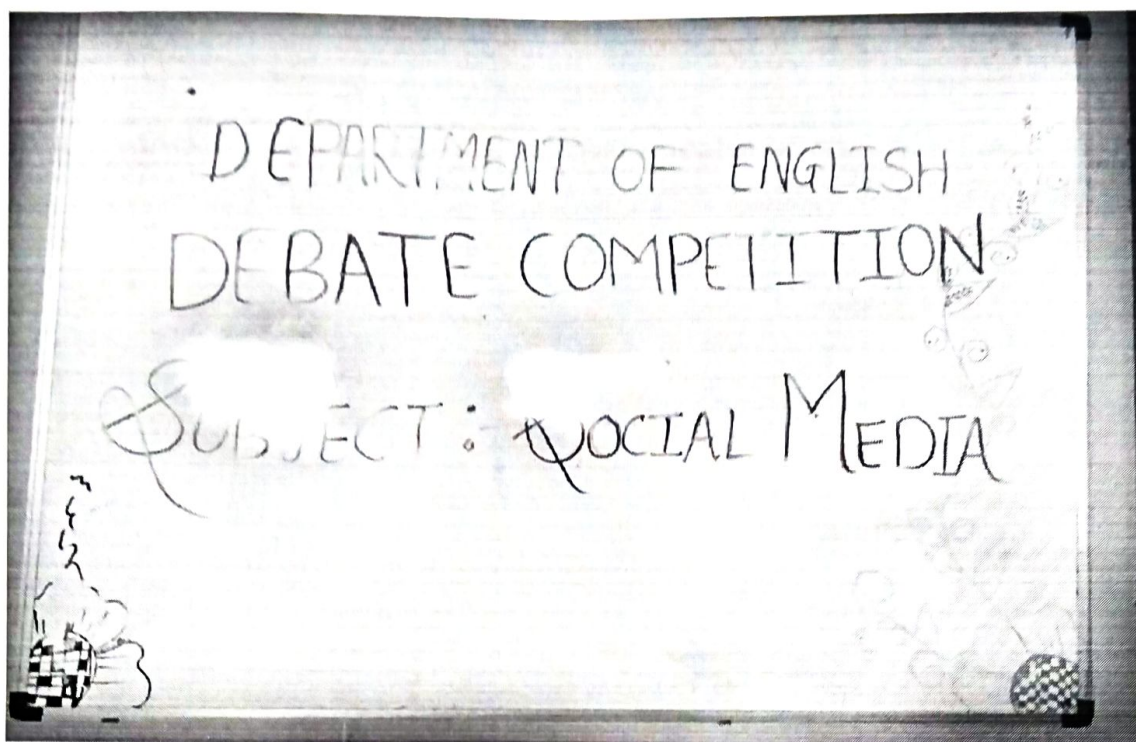 DEPARTMENT OF ENGLISH
DEBATE COMPETITION
SUBJECT: SOCIAL MEDIA